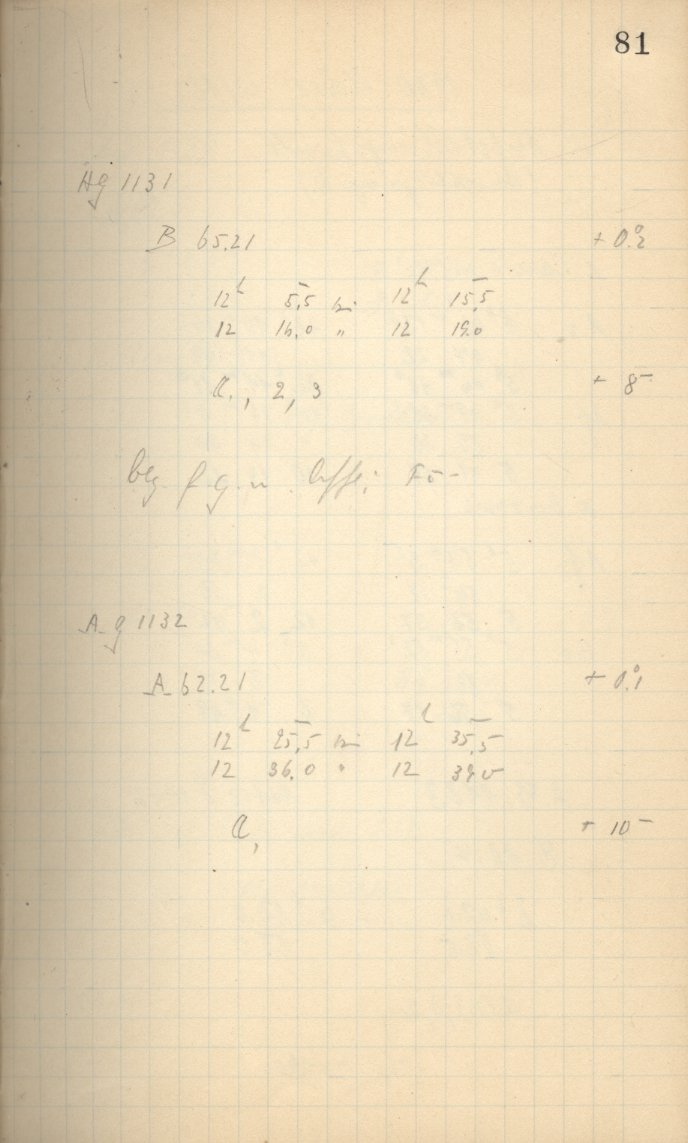 81
Ag 1131
B 65.21 + 0.°2
12h 5.5 bis 12h 15.5
12 16.0 " 12 19.0
a., 2, 3 + 8
Ag 1132
A 62.21 + 0.°1
12h 25.5 bis 12h 35.5
12 36.0 " 12 39.0
a, + 10